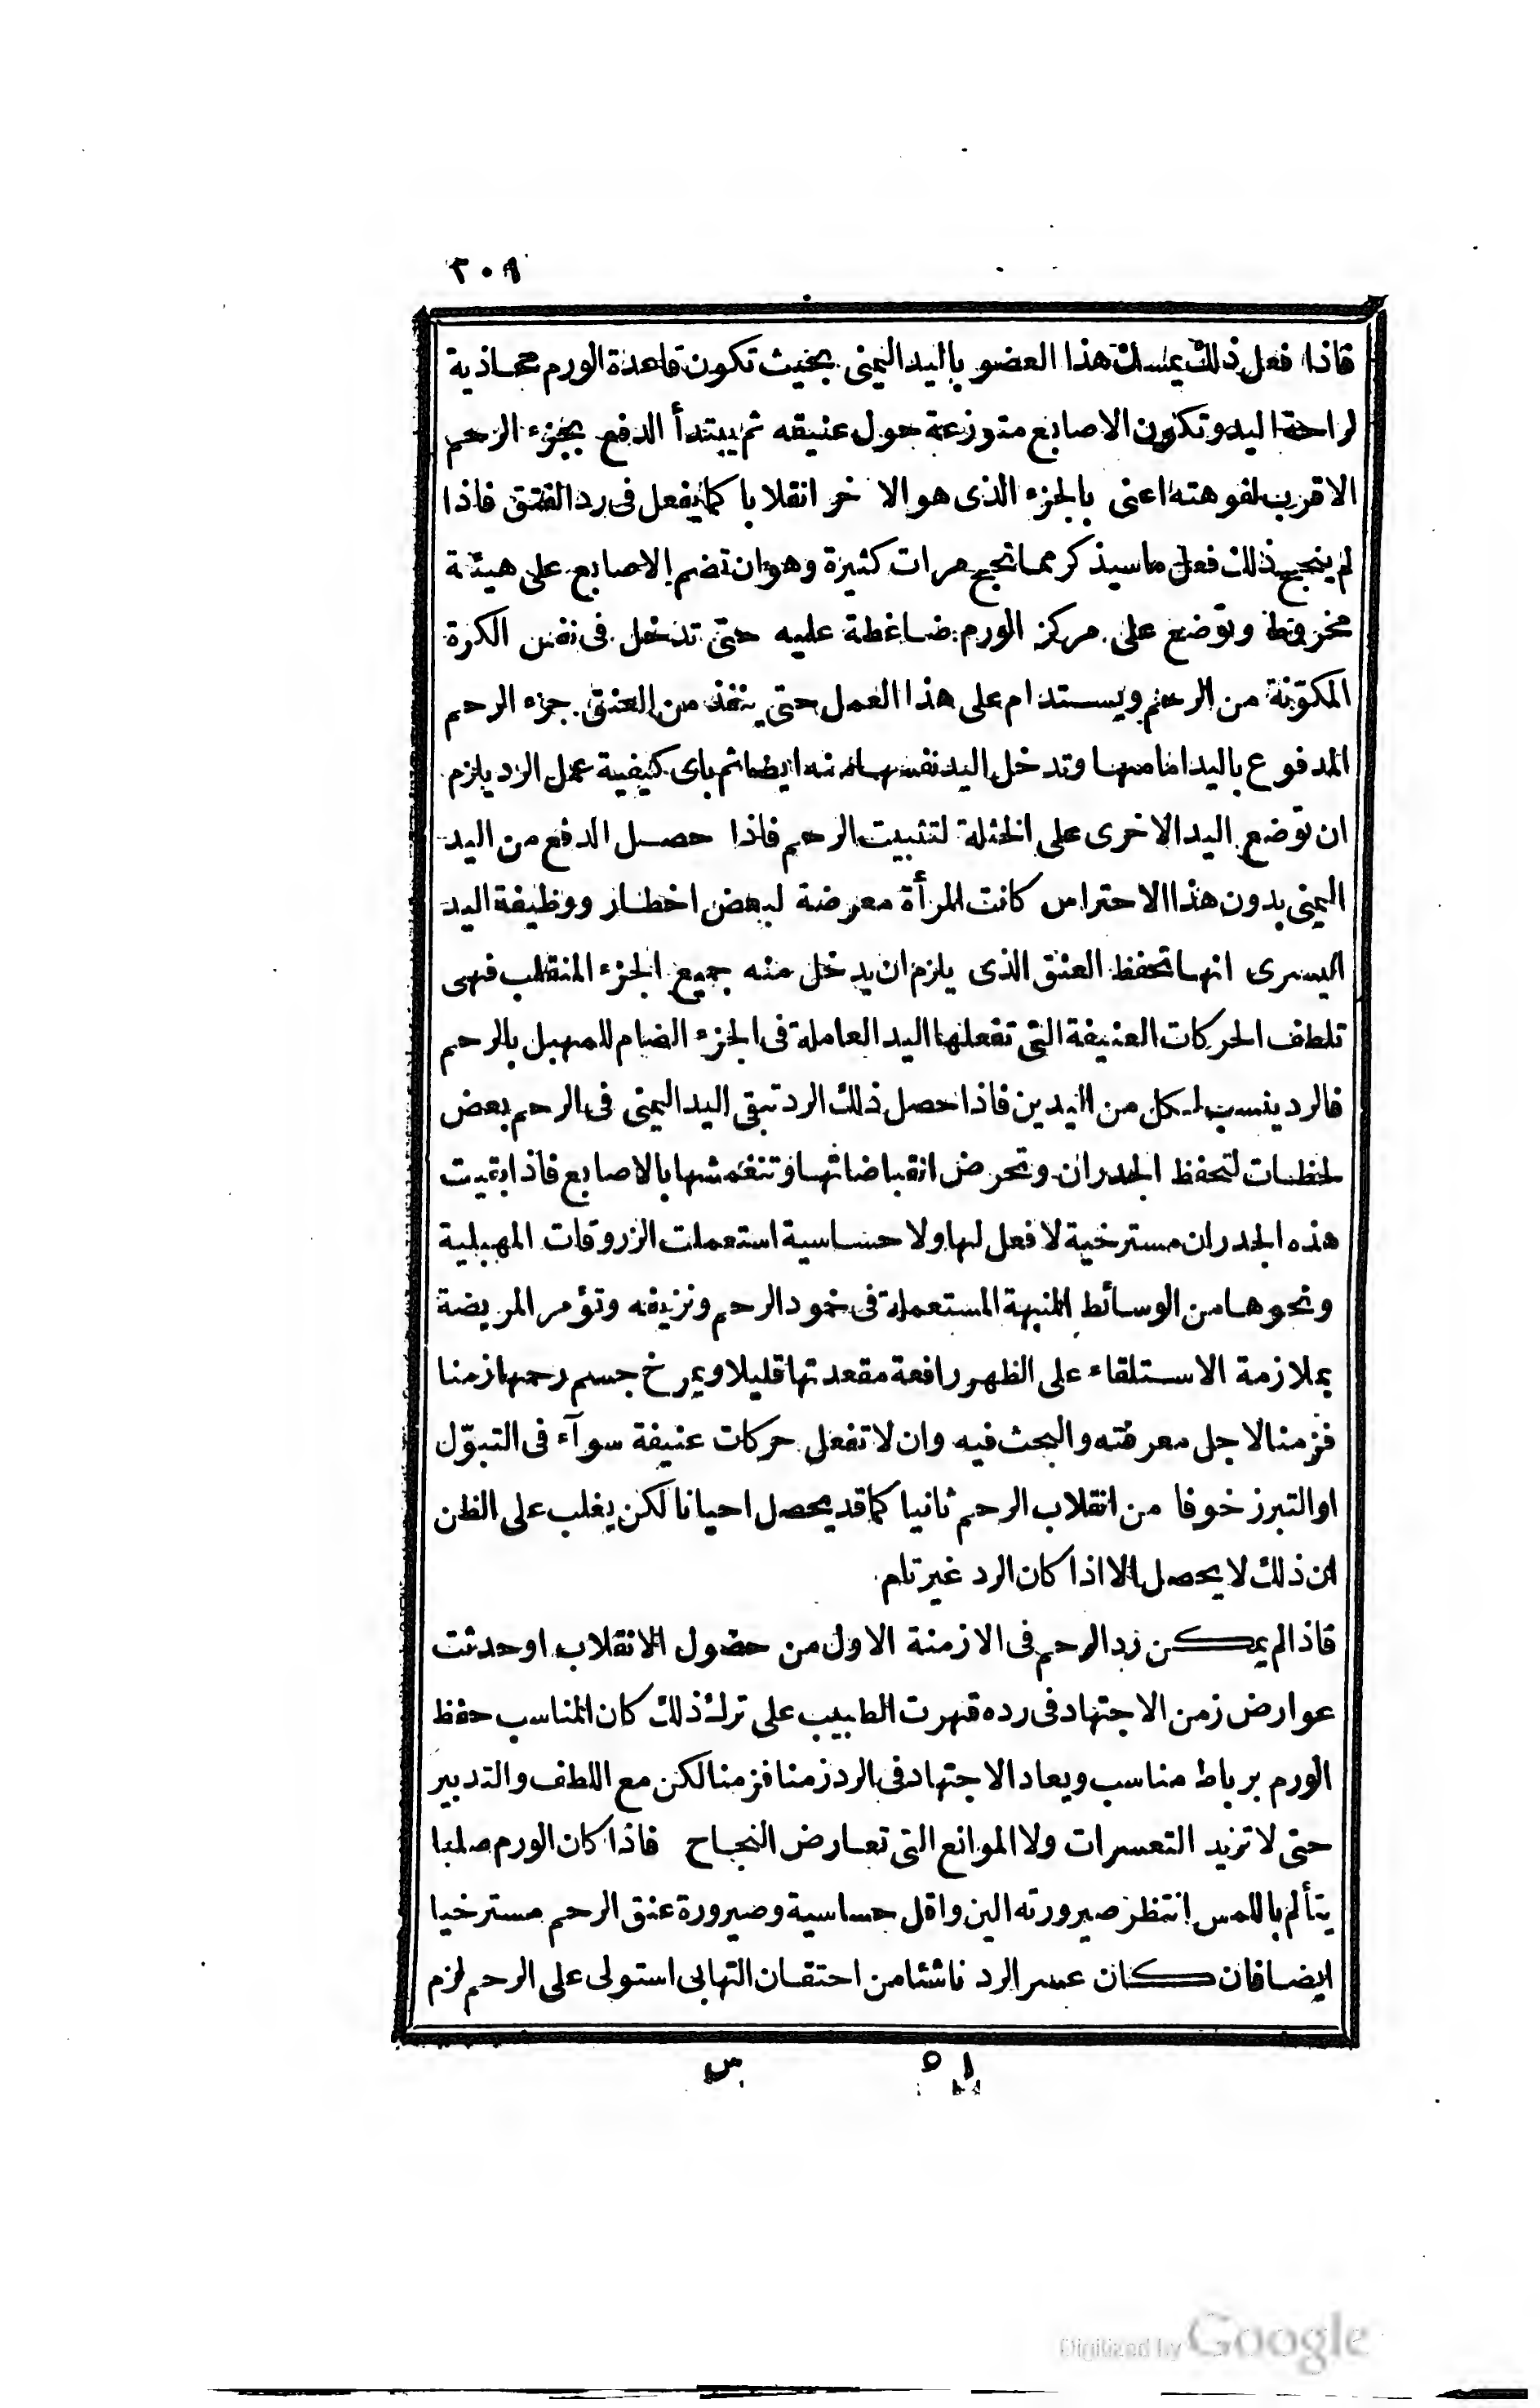 ٣٠٩
فاذا فعل ذلك يمسك هذا العضو باليد اليمنى بحيث تكون قاعدة الورم محاذية
لراحة اليد وتكون الاصابع متوزعة حول عنيقه ثم يبتدأ الدفع بجزء الرحم
الاقرب لفوهته اعنى بالجزء الذى هو الاخر انقلابا كما يفعل فى رد الفتق فاذا
لم ينجح ذلك فعل ما سيذكر مما نجح مرات كثيرة وهو ان تضم الاصابع على هيئة
مخروط وتوضع على مركز الورم ضاغطة عليه حتى تدخل فى نفس الكرة
المكوّنة من الرحم ويستدام على هذا العمل حتى ينفذ من العنق جزء الرحم
المدفوع باليد امامها وتدخل اليد نفسها منه ايضا ثم باى كيفية عمل الرد يلزم
ان توضع اليد الاخرى على الخثلة لتثبيت الرحم فاذا حصل الدفع من اليد
اليمنى بدون هذا الاحتراس كانت المرأة معرضة لبعض اخطار ووظيفة اليد
اليسرى انها تحفظ العنق الذى يلزم ان يدخل منه جميع الجزء المنقلب فهى
تلطف الحركات العنيفة التى تفعلها اليد العاملة فى الجزء الضام للمهبل بالرحم
فالرد ينسب لكل من اليدين فاذا حصل ذلك الرد تبقى اليد اليمنى فى الرحم بعض
لحظات لتحفظ الجدران وتحرض انقباضاتها وتنغمشها بالاصابع فاذا بقيت
هذه الجدران مسترخية لا فعل لها ولا حساسية استعملت الزروقات المهبلية
ونحوها من الوسائط المنبهة المستعملة فى خمود الرحم ونزيفه وتؤمر المريضة
بملازمة الاستلقاء على الظهر رافعة مقعدتها قليلا ويمرخ جسم رحمها زمنا
فزمنا لاجل معرفته والبحث فيه وان لا تفعل حركات عنيفة سوآء فى التبوّل
او التبرز خوفا من انقلاب الرحم ثانيا كما قد يحصل احيانا لكن يغلب على الظن
ان ذلك لا يحصل الا اذا كان الرد غير تام
فاذا لم يمكن رد الرحم فى الازمنة الاول من حصول الانقلاب او حدثت
عوارض زمن الاجتهاد فى رده قهرت الطبيب على ترك ذلك كان المناسب حفظ
الورم برباط مناسب ويعاد الاجتهاد فى الرد زمنا فزمنا لكن مع اللطف والتدبير
حتى لا تزيد التعسرات ولا الموانع التى تعارض النجاح فاذا كان الورم صلبا
يتألم باللمس انتظر صيرورته الين واقل حساسية وصيرورة عنق الرحم مسترخيا
ايضا فان كان عسر الرد ناشئا من احتقان التهابى استولى على الرحم لزم
Digitized by Google